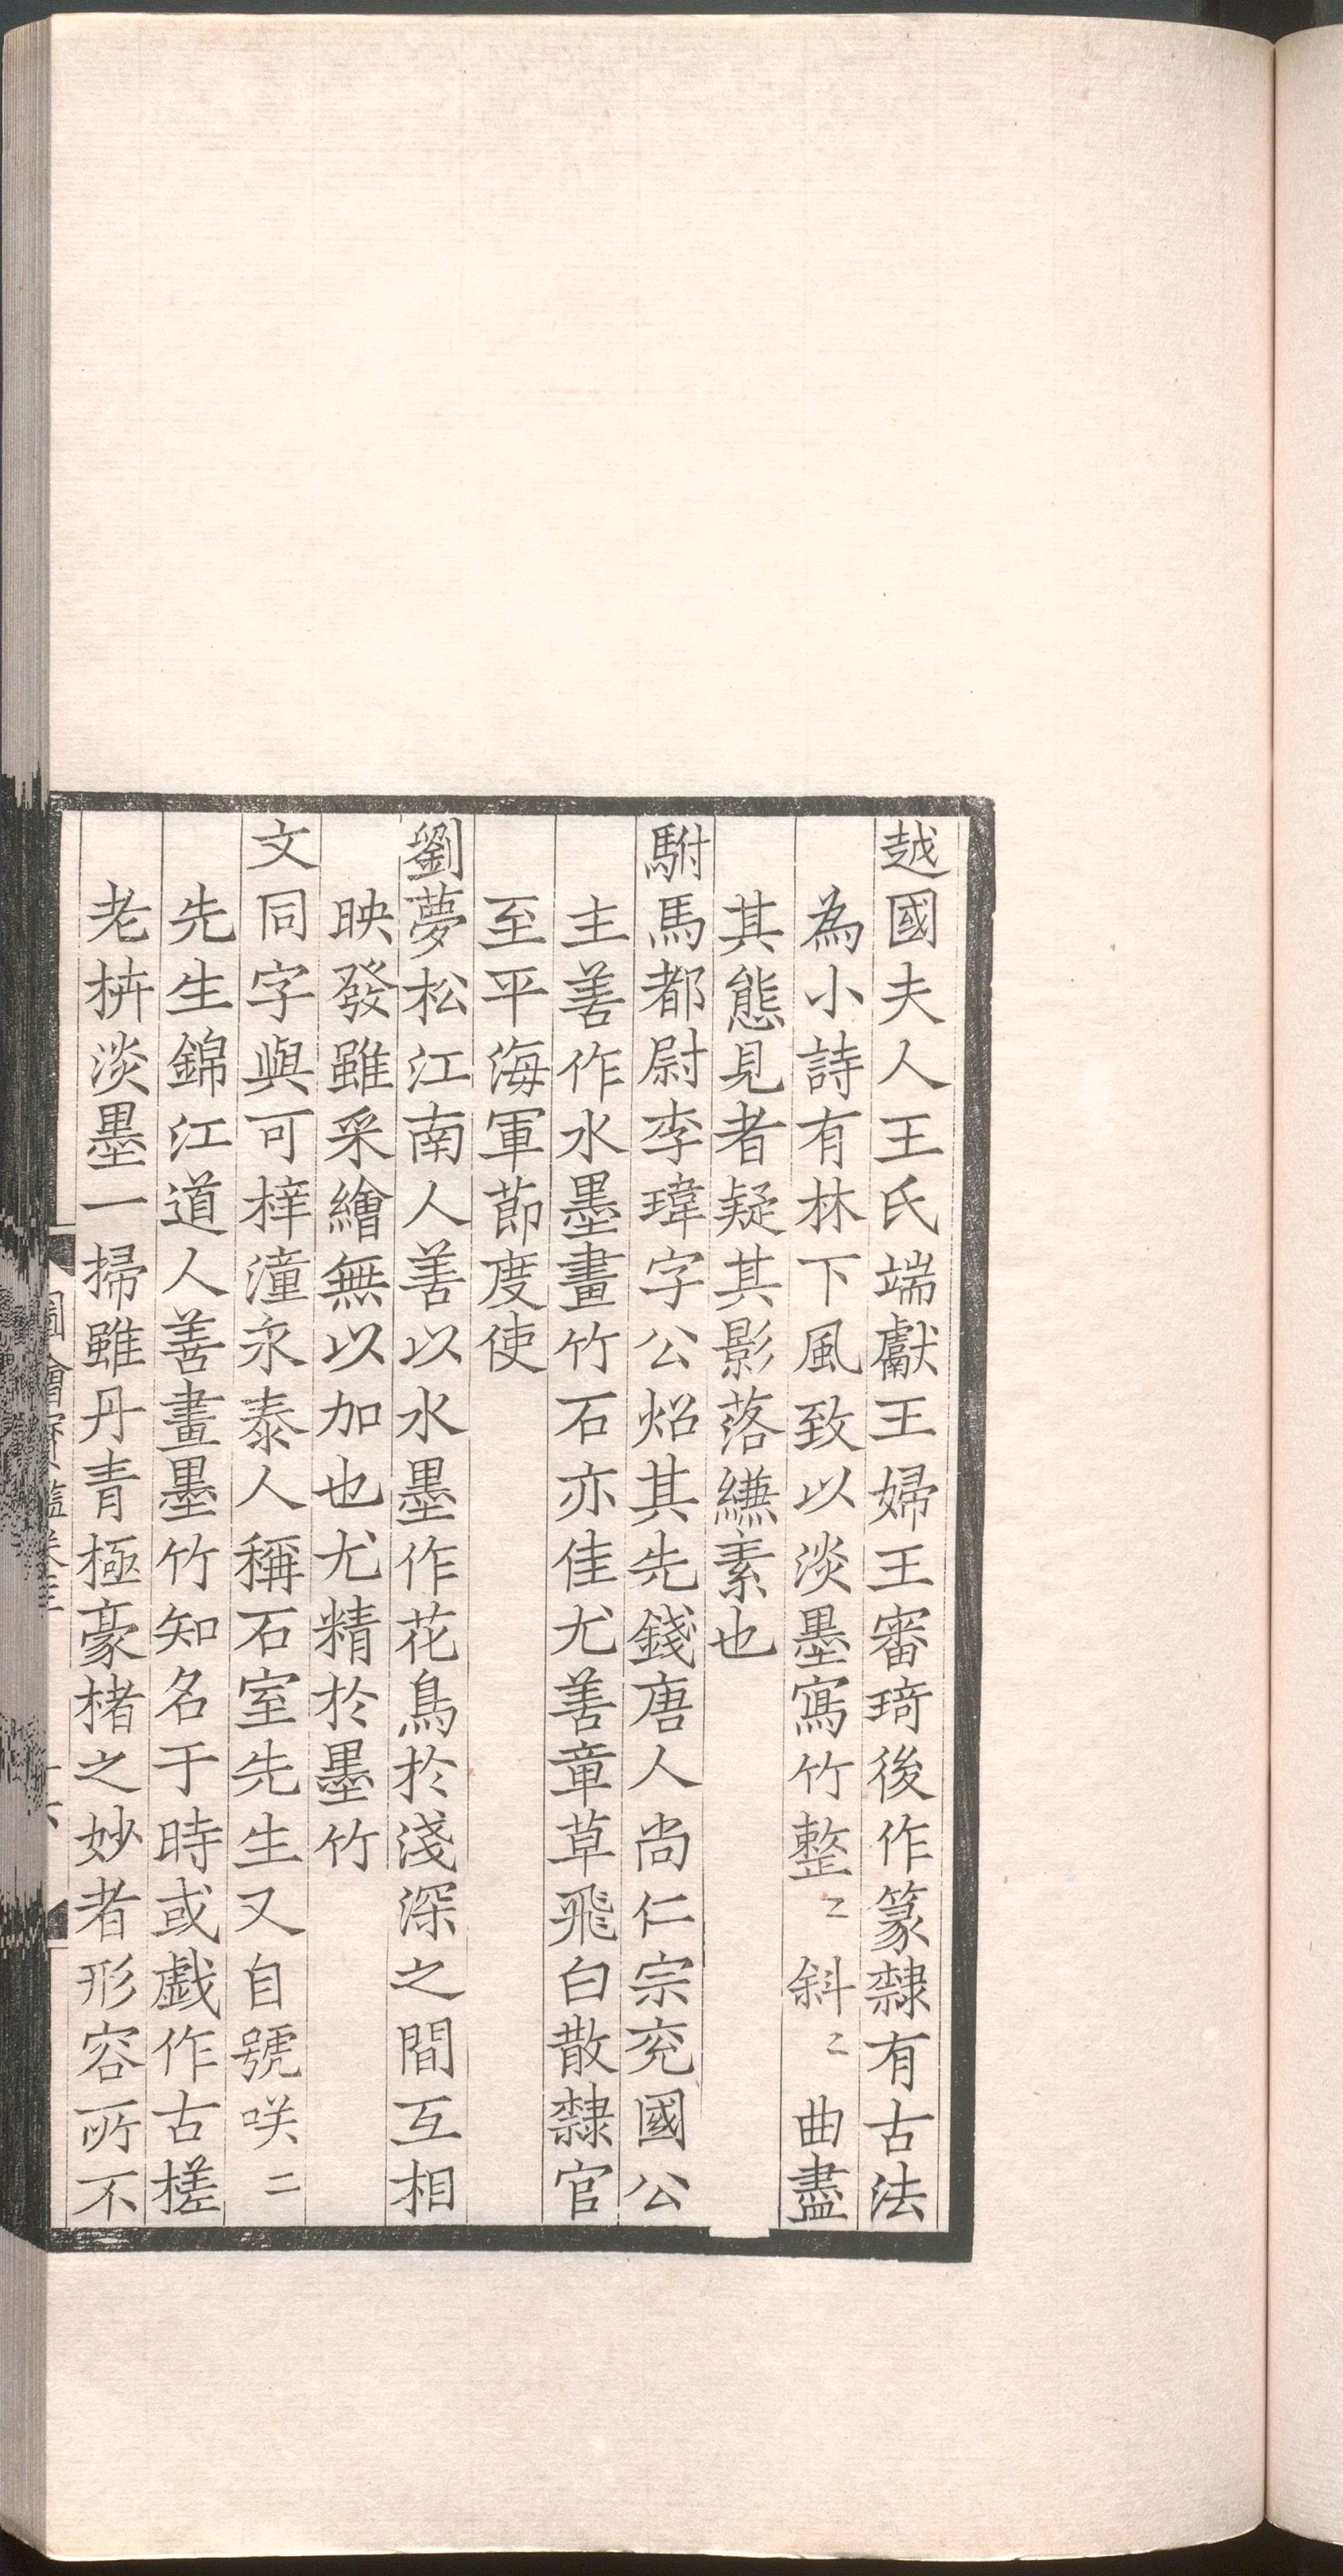 越國夫人王氏端獻王婦王審琦後作篆隸有古法
為小詩有林下風致以淡墨寫竹整〻斜〻曲盡
其態見者疑其影落縑素也
駙馬都尉李瑋字公炤其先錢唐人尚仁宗兖國公
主善作水墨畫竹石亦佳尤善章草飛白散隸官
至平海軍節度使
劉夢松江南人善以水墨作花鳥於淺深之間互相
映發雖采繪無以加也尤精於墨竹
文同字與可梓潼永泰人稱石室先生又自號咲〻
先生錦江道人善畫墨竹知名于時或戯作古槎
老枿淡墨一掃雖丹青極豪楮之妙者形容所不